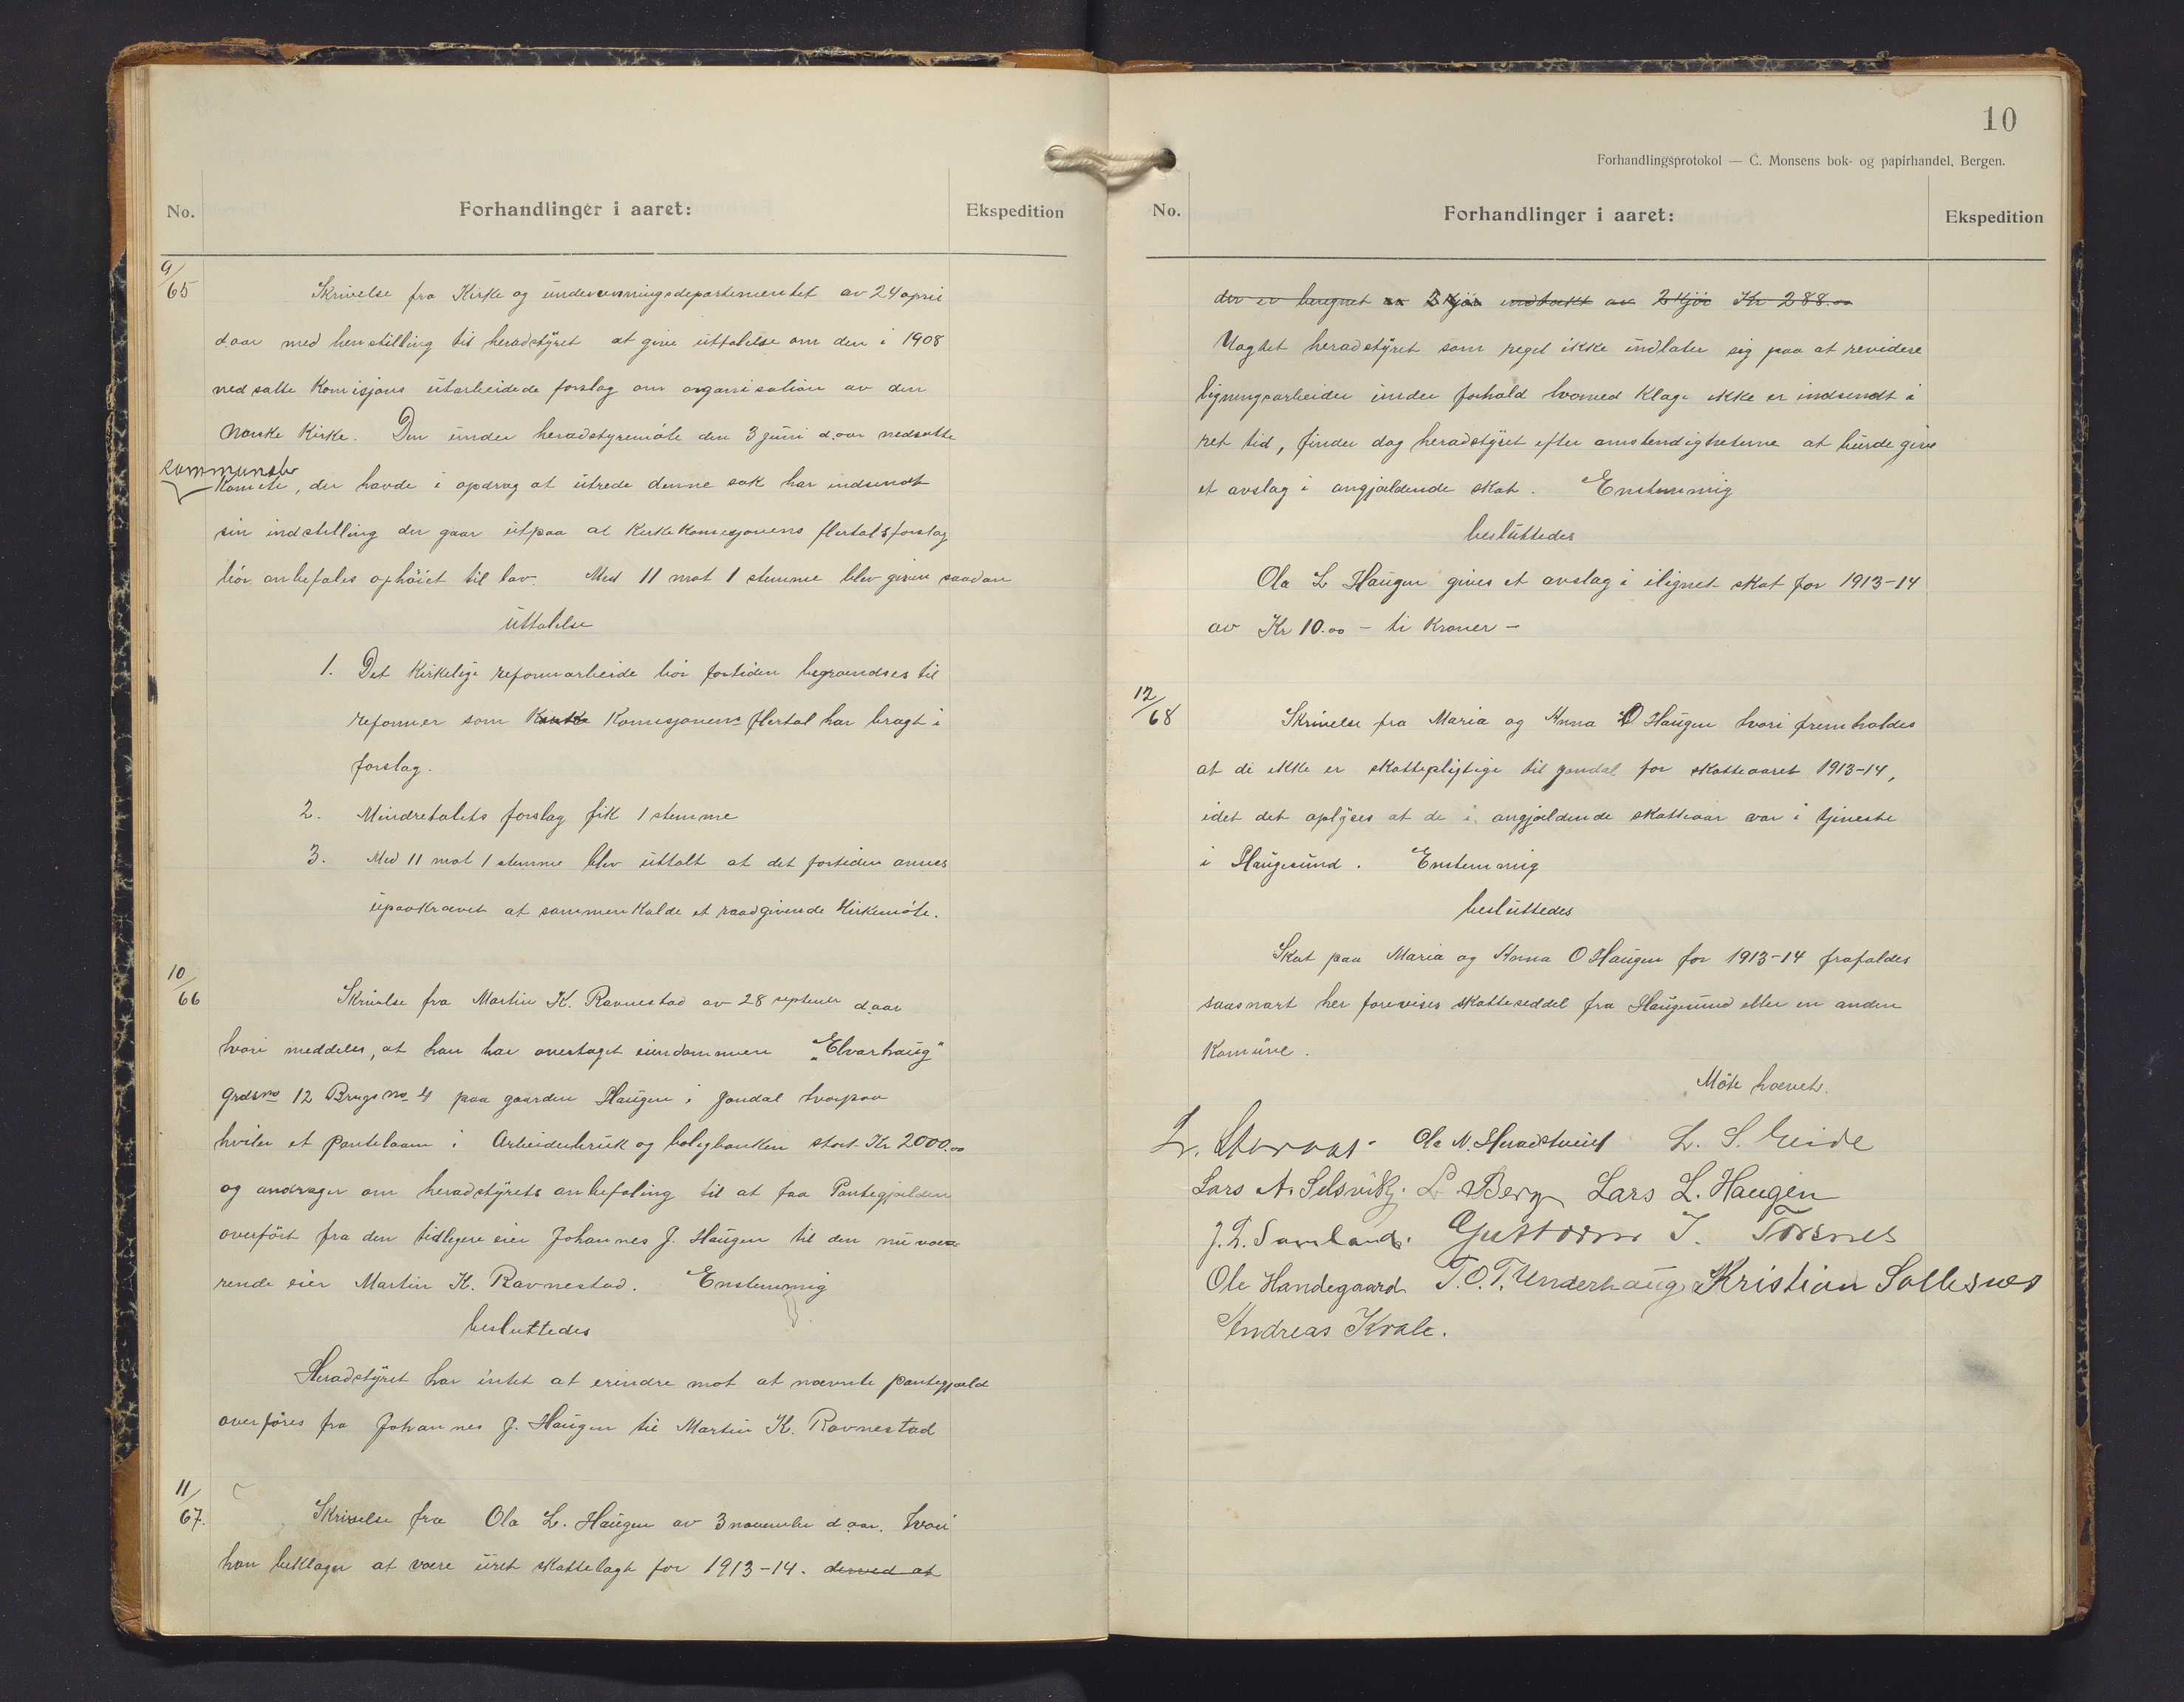 No.
Forhandlinger i aaret:
Ekspedition
9/65
Skrivelse fra Kirke og undervisningsdepartementet av 24 april
d.aar med henstilling til heradstyret at give uttalelse om den i 1908
nedsatte Komisjons utarbeidede forslag om organisation av den
Norske Kirke. Den under heradstyremøte den 3 juni d.aar nedsatte
kommunale
Komite, der havde i opdrag at utrede denne sak har indsendt
sin indstilling der gaar ut paa at Kirkekomisjonens flertalsforslag
bør anbefales ophøiet til lov. Med 11 mot 1 stemme blev given saadan
uttalelse
1. Det Kirkelige reformarbeide bør fortiden begrændses til
reformer som Komisjonens flertal har bragt i
forslag.
2. Mindretalets forslag fik 1 stemme
3. Med 11 mot 1 stemme blev uttalt at det fortiden ansees
upaakrævet at sammenkalde et raadgivende Kirkemøte.
10/66
Skrivelse fra Martin K. Ravnestad av 28 septemer d.aar
hvori meddeles, at han har overtaget eiendommen "Elvarhaug"
Grdsno 12 Brugsno 4 paa gaarden Haugen i Jondal hvorpaa
hviler et Pantelaan i Arbeiderbruk og boligbanken stort Kr 2000.00
og andrager om heradstyrets anbefaling til at faa Pantegjælden
overført fra den tidligere eier Johannes J. Haugen til den nuvæ-
rende eier Martin K. Ravnestad. Enstemmig
besluttedes
Heradstyret har intet at erindre mot at nævnte pantegjæld
overføres fra Johannes J. Haugen til Martin K. Ravnestad
11/67.
Skrivelse fra Ola L. Haugen av 3 november d.aar. hvori
han beklager at være uret skattelagt for 1913-14. derved at
10
Forhandlingsprotokol — C. Monsens bok- og papirhandel, Bergen.
No.
Forhandlinger i aaret:
Ekspedition
der er beregnet indtækt av 2 Kjør Kr 288.00
Uagtet heradstyret som regel ikke indlater sig paa at revidere
ligningsarbeider under forhold hvorved Klage ikke er indsendt i
ret tid, finder dog heradstyret efter omstendigheterne at burde give
et avslag i angjældende skat. Enstemmig
besluttedes
Ola L Haugen gives et avslag i ilignet skat for 1913-14
av Kr 10.00 – ti Kroner –
12/68
Skrivelse fra Maria og Anna O Haugen hvori fremholdes
at de ikke er skattepligtige til Jondal for skatteaaret 1913-14,
idet det oplyses at de i angjældende skatteaar var i tjeneste
i Haugesund. Enstemmig
besluttedes
Skat paa Maria og Anna O Haugen for 1913-14 frafaldes
saasnart her forevises skatteseddel fra Haugesund eller en anden
Komune.
Møte hævet.
Ola N. Heradstveit L. S. Eide
Lars A. Selsvik L. Berg Lars L. Haugen
J. L. Samland. Guttorm J. Torsnes
Ole Handegaard T. O. T. Underhaug Kristian Sollesnes
Andreas Kvale.